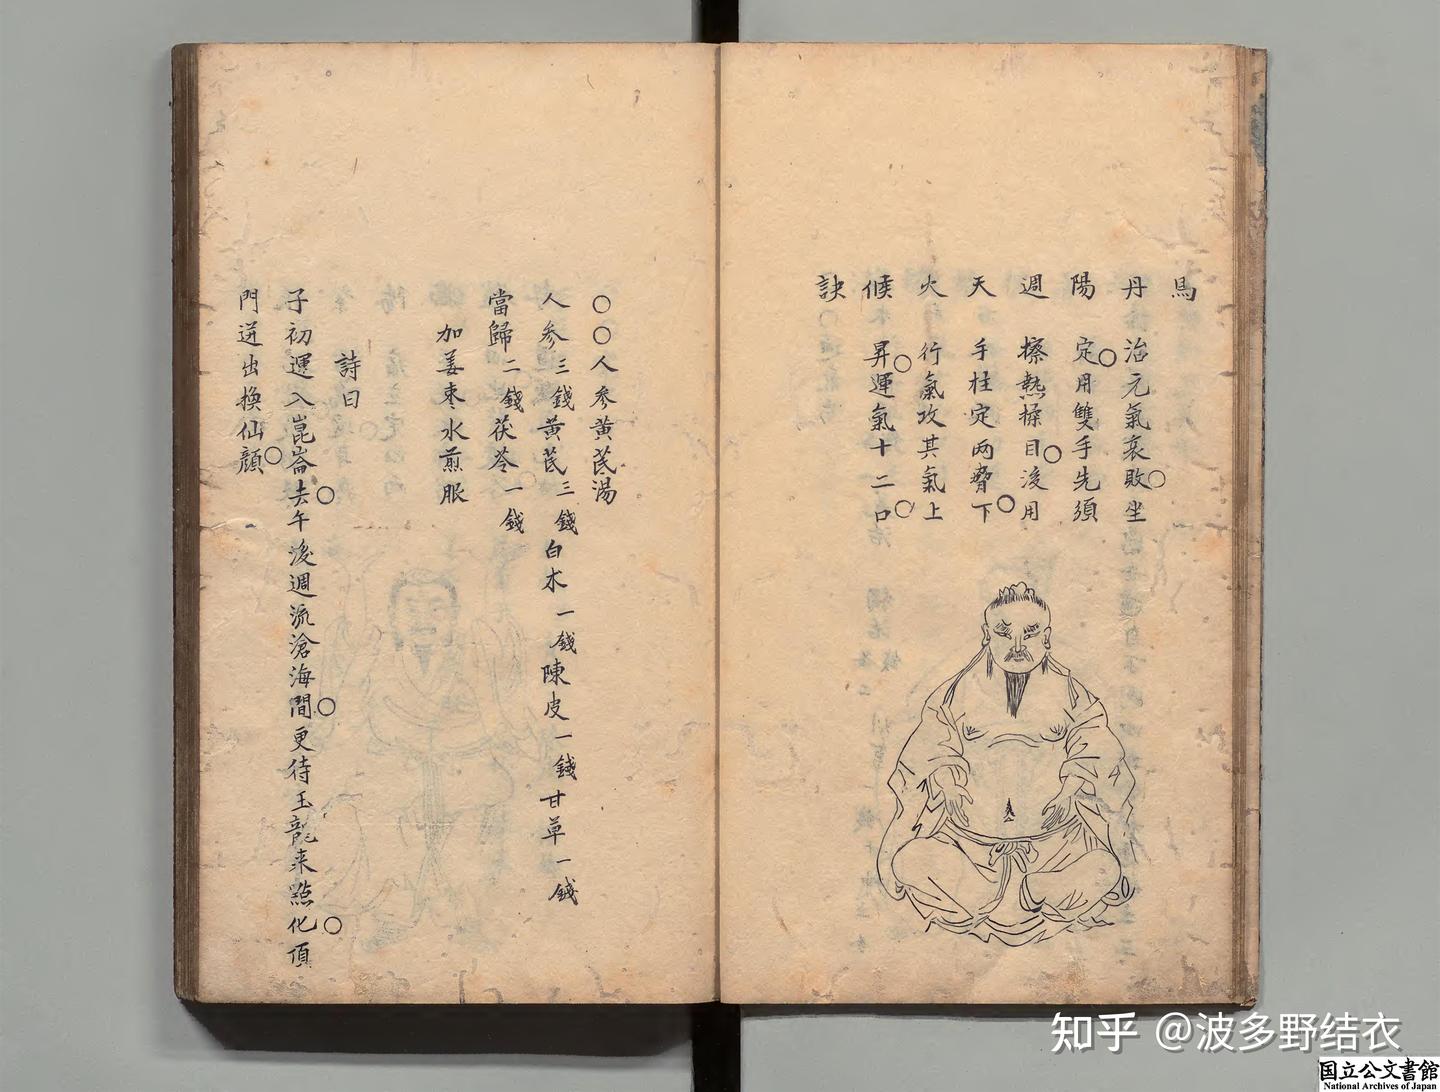 馬
丹治元氣衰敗○坐
陽定○用雙手先須
週擦熱揉目○後用
天手柱定兩脅下○
火行氣攻其氣上
候昇○運氣十二口○
訣
○○人参黄芪湯
人参三錢黄芪三錢白术一錢陳皮一錢甘草一錢
當歸二錢茯苓一錢
加姜枣水煎服
詩曰
子初運入崑崙去○午後週流滄海間○更待玉龍来點化○頂
門迸出換仙顔○
知乎 @波多野结衣
国立公文書館
National Archives of Japan